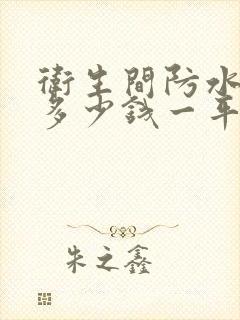 衛生間防水
多少錢一平
朱之鑫